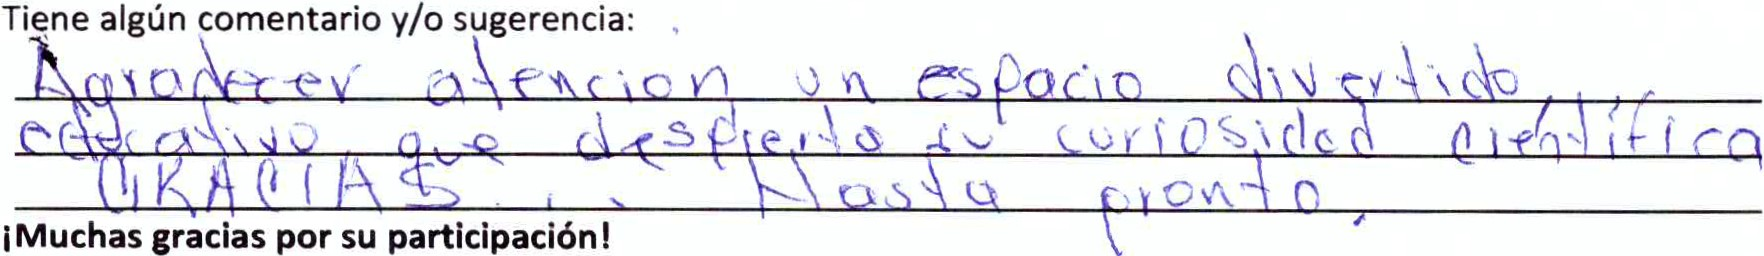 Tiene algún comentario y/o sugerencia:
Agradecer atencion un espacio divertido
educativo que despierta su curiosidad cientifica
GRACIAS... Hasta pronto.
¡Muchas gracias por su participación!